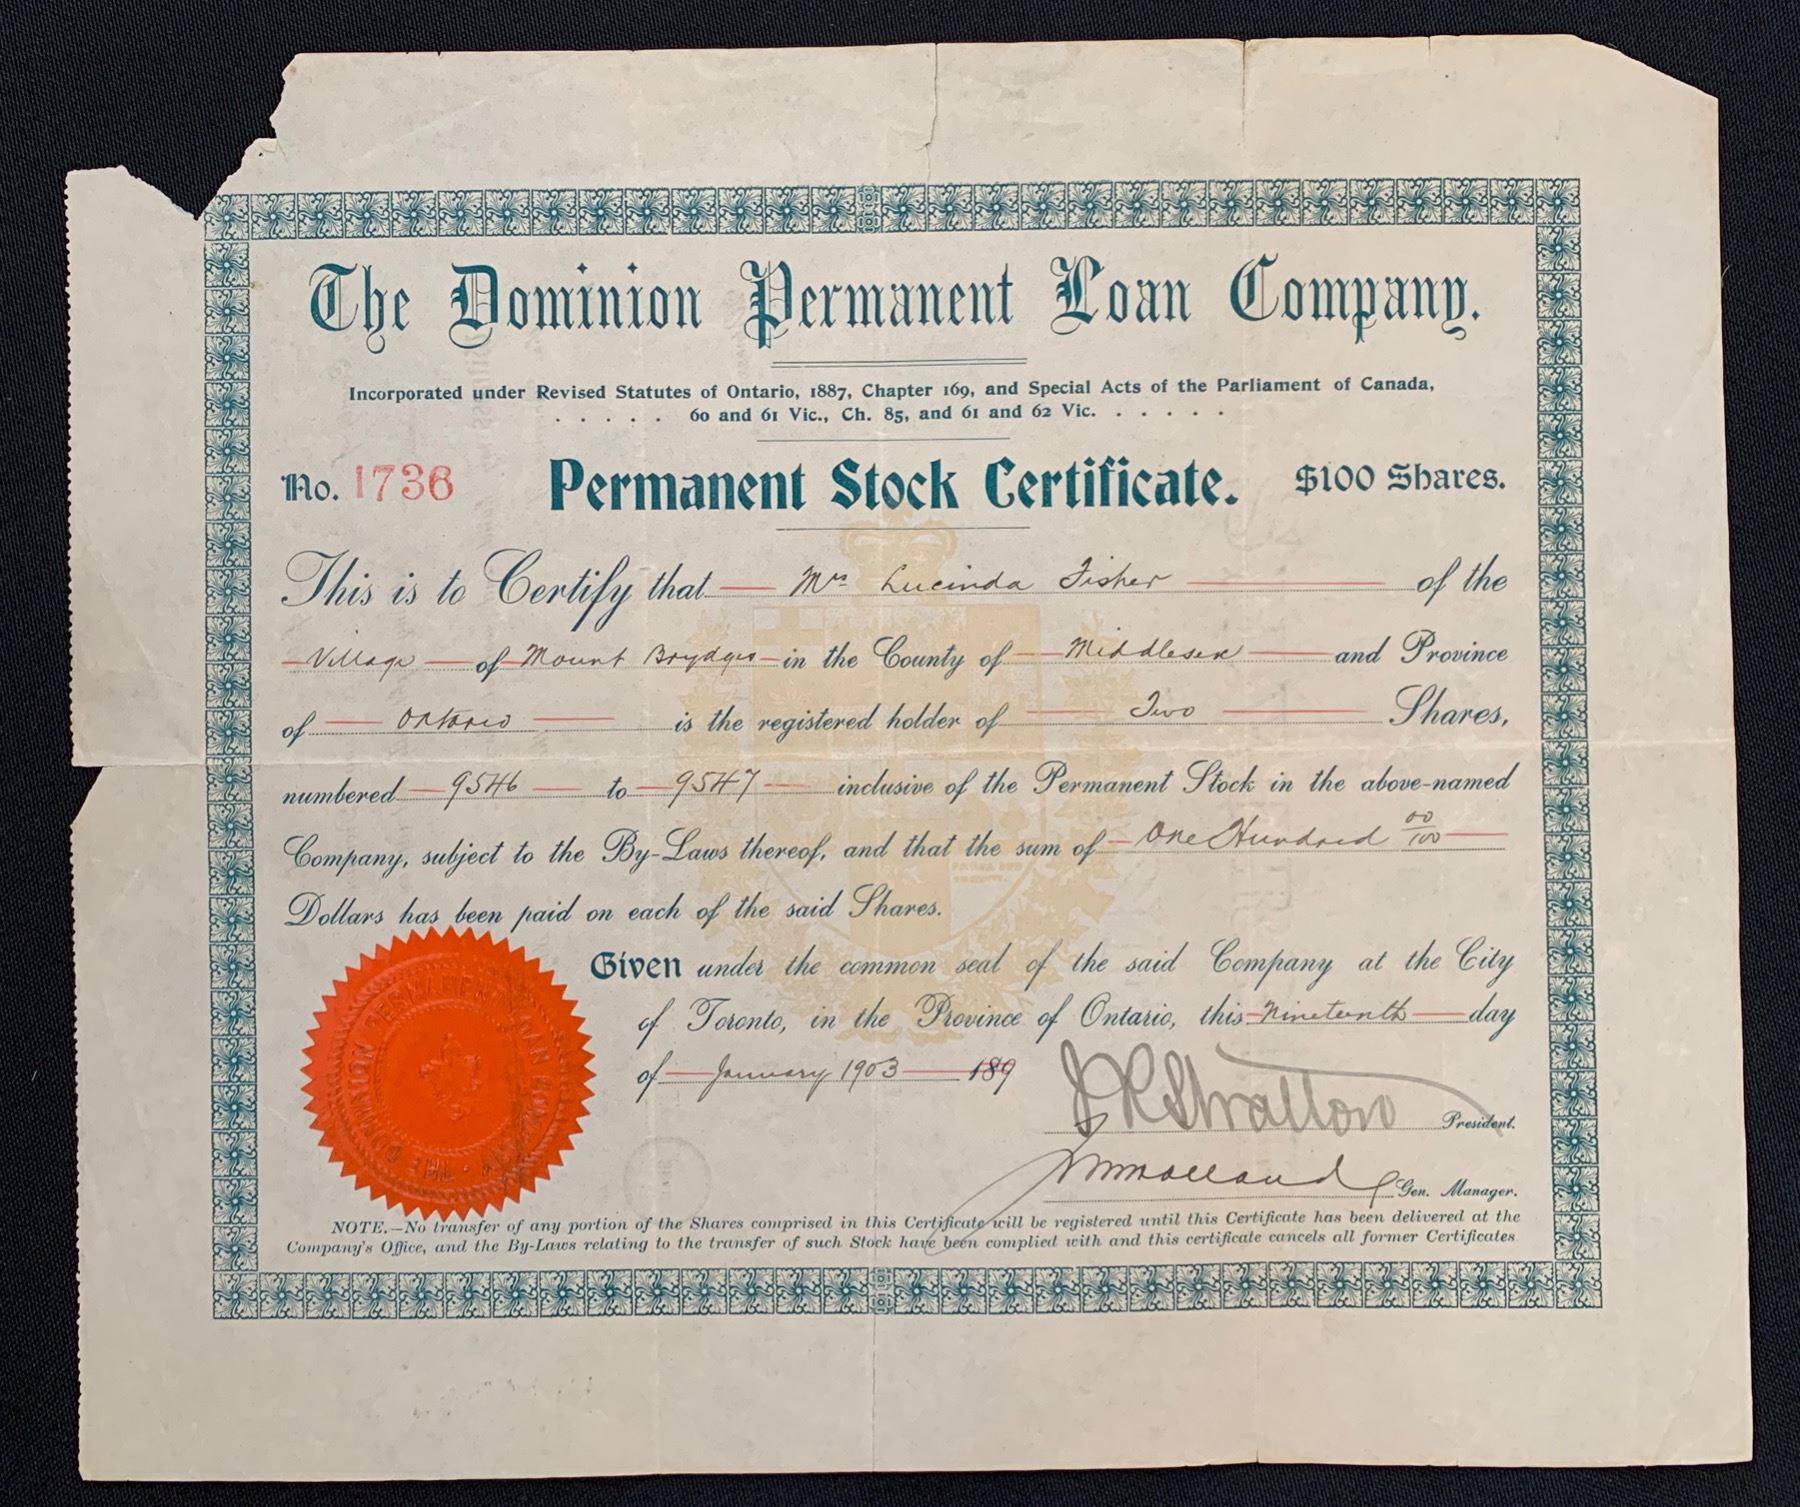 The Dominion Permanent Loan Company.
Incorporated under Revised Statutes of Ontario, 1887, Chapter 169, and Special Acts of the Parliament of Canada,
. . . . . 60 and 61 Vic., Ch. 85, and 61 and 62 Vic. . . . . .
No. 1736 Permanent Stock Certificate. $100 Shares.
This is to Certify that Mrs Lucinda Fisher of the
Village of Mount Brydges in the County of Middlesex and Province
of Ontario is the registered holder of Two Shares,
numbered 9546 to 9547 inclusive of the Permanent Stock in the above-named
Company, subject to the By-Laws thereof, and that the sum of One Hundred 00/100
Dollars has been paid on each of the said Shares.
Given under the common seal of the said Company at the City
of Toronto, in the Province of Ontario, this Nineteenth day
of January 1903 189
J R Stratton President.
Holland Gen. Manager.
THE DOMINION PERMANENT LOAN COMPANY
NOTE.—No transfer of any portion of the Shares comprised in this Certificate will be registered until this Certificate has been delivered at the
Company's Office, and the By-Laws relating to the transfer of such Stock have been complied with and this certificate cancels all former Certificates